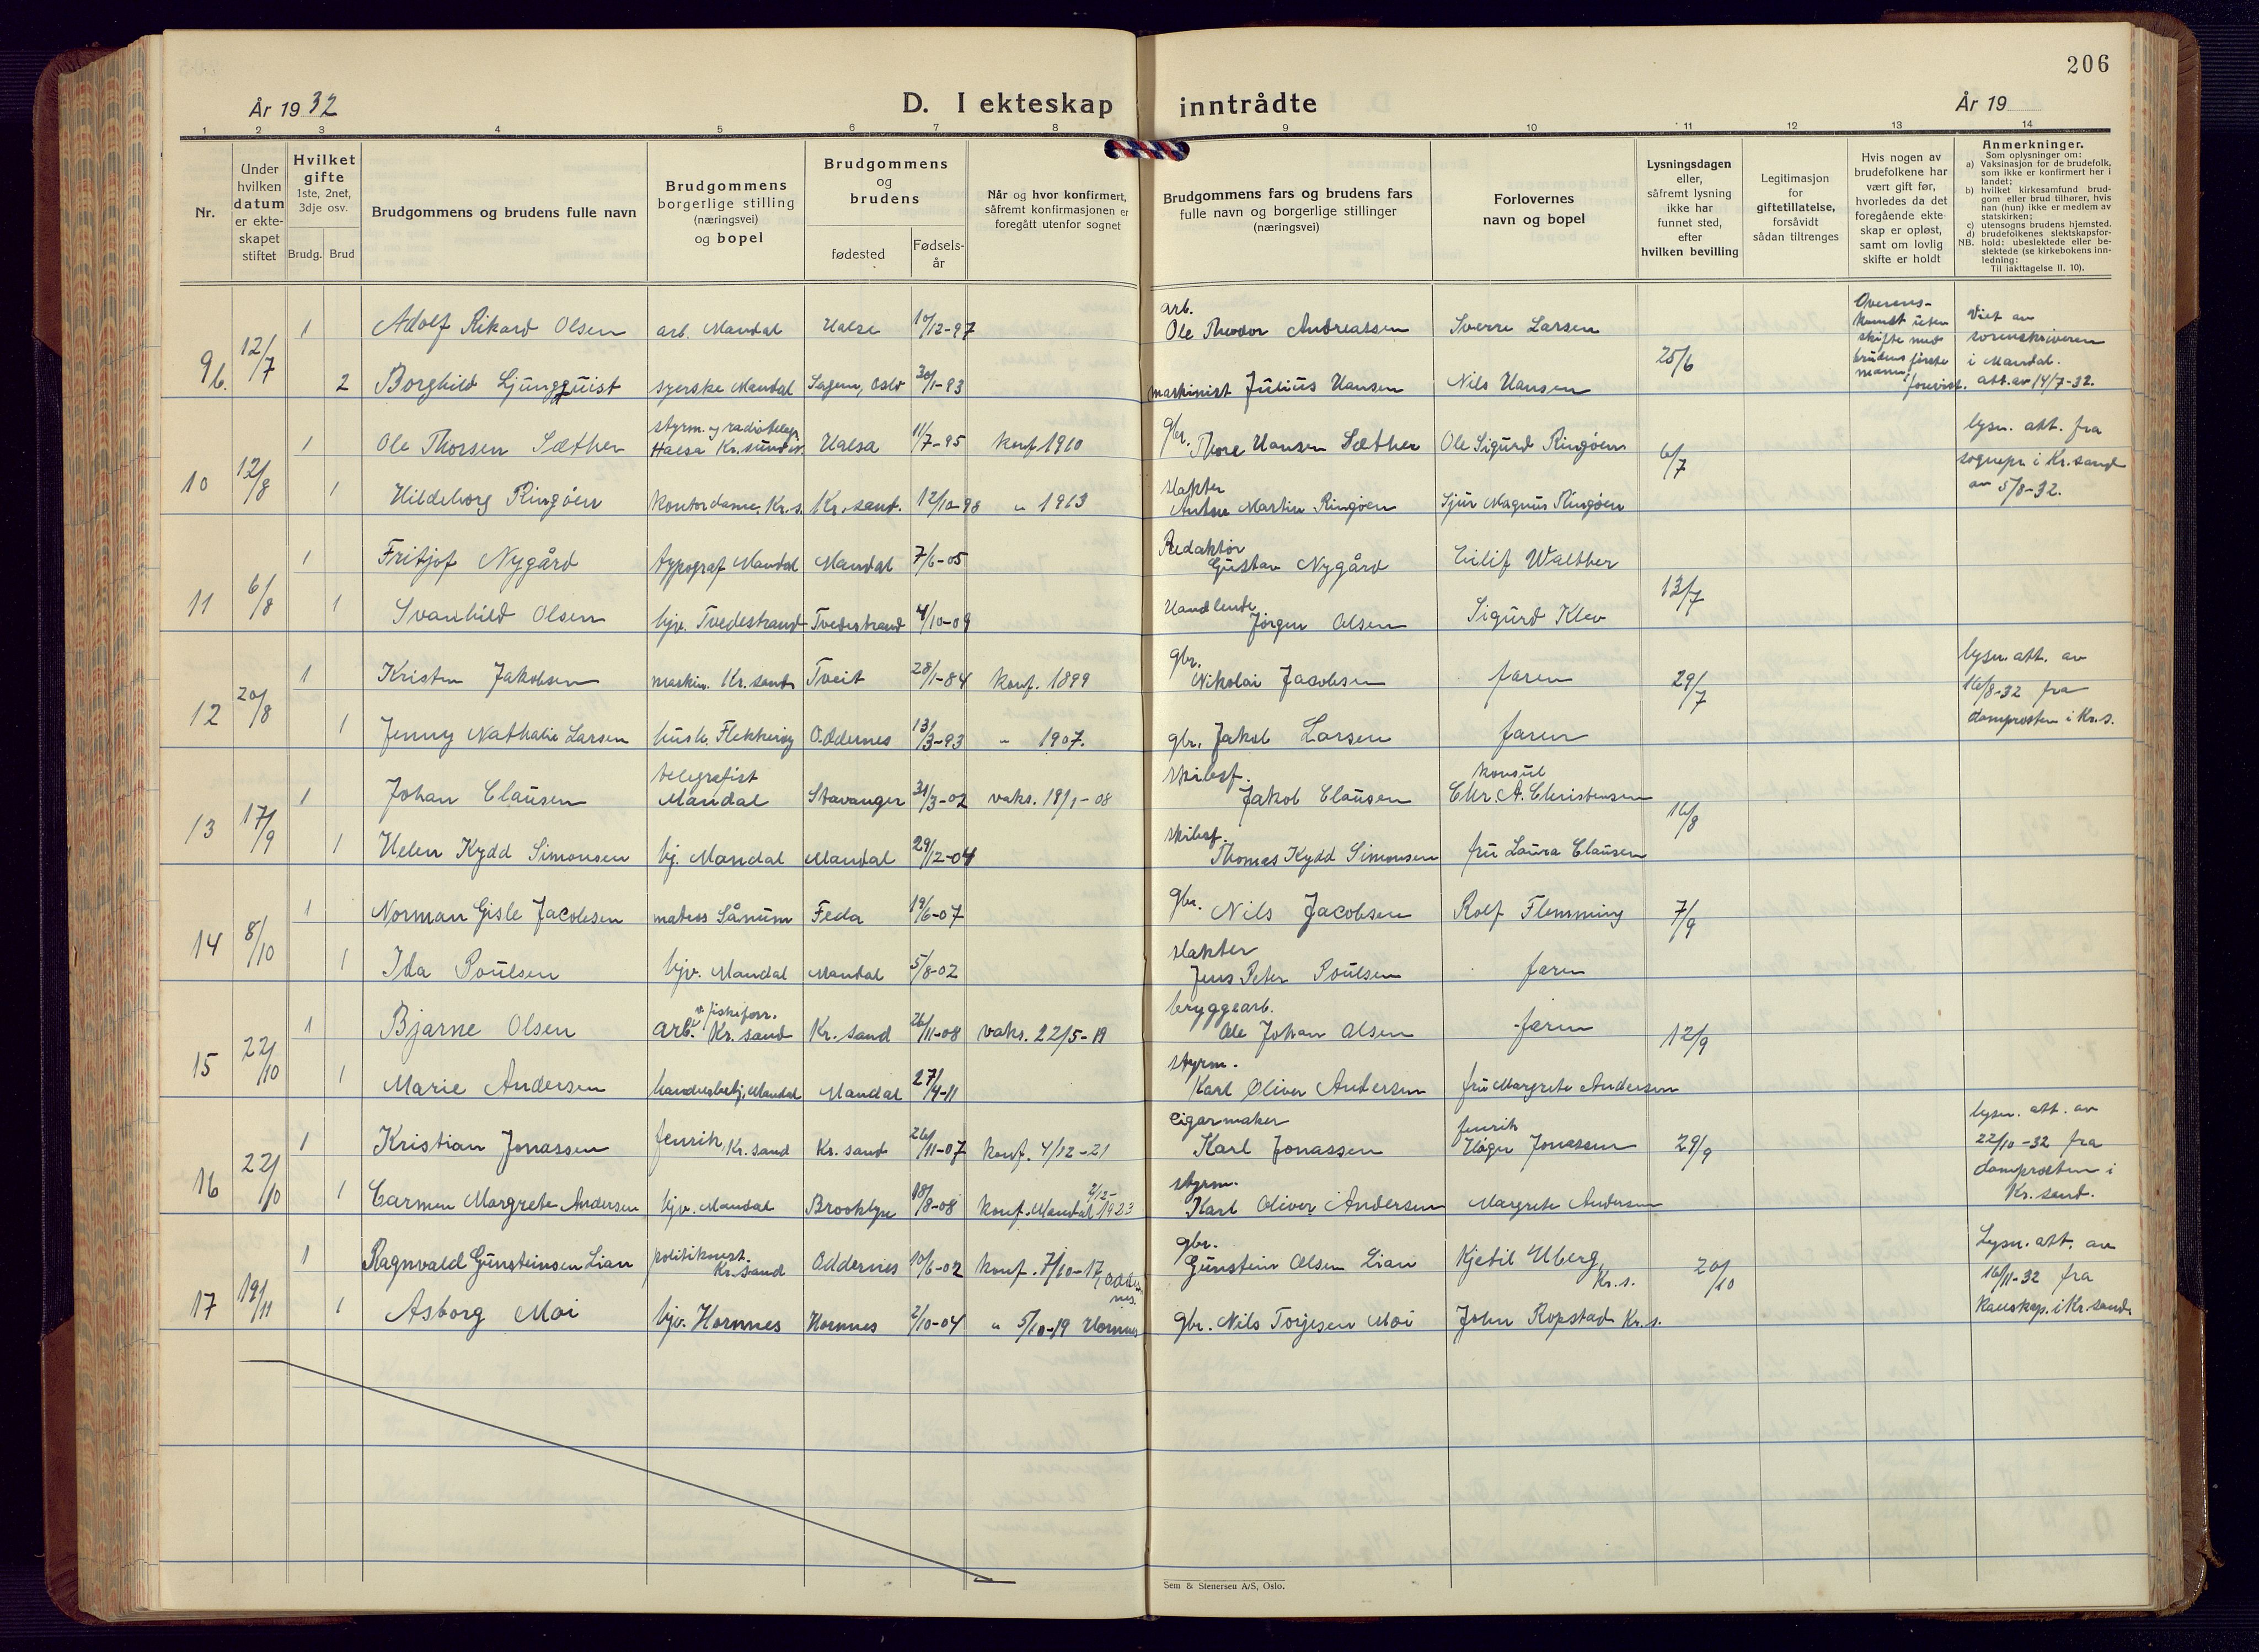 206
År 1932
D. I ekteskap inntrådte
År 19
1 2 3 4 5 6 7 8 9 10 11 12 13 14
Nr.
Under hvilken datum er ekteskapet stiftet
Hvilket gifte 1ste, 2net, 3dje osv.
Brudg. Brud
Brudgommens og brudens fulle navn
Brudgommens borgerlige stilling (næringsvei) og bopel
Brudgommens og brudens
fødested
Fødsels-år
Når og hvor konfirmert, såfremt konfirmasjonen er foregått utenfor sognet
Brudgommens fars og brudens fars fulle navn og borgerlige stillinger (næringsvei)
Forlovernes navn og bopel
Lysningsdagen eller, såfremt lysning ikke har funnet sted, efter hvilken bevilling
Legitimasjon for giftetillatelse, forsåvidt sådan tiltrenges
Hvis nogen av brudefolkene har vært gift før, hvorledes da det foregående ekteskap er opløst, samt om lovlig skifte er holdt
Anmerkninger.
Som oplysninger om:
a) Vaksinasjon for de brudefolk, som ikke er konfirmert her i landet;
b) hvilket kirkesamfund brudgom eller brud tilhører, hvis han (hun) ikke er medlem av statskirken;
c) utensogns brudens hjemsted.
d) brudefolkenes slektskapsfor-
NB. hold: ubeslektede eller beslektede (se kirkebokens innledning:
Til iakttagelse II. 10).
9b. 12/7 1 Adolf Rikard Olsen arb. Mandal Halse 10/12-97 arb. Ole Theodor Andreassen Sverre Larsen 25/6 Overenskomst uten skifte med brudens første mann forevist. Viet av sorenskriveren i Mandal. att. av 14/7-32.
2 Borghild Ljungquist syerske Mandal Sagene, Oslo 30/1-93 maskinist Julius Hansen Nils Hansen
10 12/8 1 Ole Thorsen Sæther styrm. og radiotelegr. Halsa Kr.sund N. Halsa 11/7-95 konf. 1910 gbr. Thore Hansen Sæther Ole Sigurd Ringøen 6/7 lysn. att. fra sognepr. i Kr.sand av 5/8-32.
1 Hildeborg Ringøen kontordame, Kr.s. Kr.sand. 12/10-98 " 1913 slakter Anton Martin Ringøen Sjur Magnus Ringøen
11 6/8 1 Fritjof Nygård typograf Mandal Mandal 7/6-05 Redaktør Gustav Nygård Eilif Walther 13/7
1 Svanhild Olsen hjv. Tvedestrand Tvedestrand 4/10-09 Handlende Jørgen Olsen Sigurd Klev
12 20/8 1 Kristen Jakobsen maskin. Kr.sand Tveit 28/1-84 konf. 1899 gbr. Nikolai Jacobsen faren 29/7 lysn. att. av 16/8-32 fra domprosten i Kr.s.
1 Jenny Nathalie Larsen hush. Flekkerøy Oddernes 13/3-93 " 1907. gbr. Jakob Larsen faren
13 17/9 1 Johan Clausen telegrafist Mandal Stavanger 31/3-02 vaks. 18/1-08 skibsf. Jakob Clausen konsul Chr. A. Christensen 16/8
1 Helen Kydd Simonsen hj. Mandal Mandal 29/12-04 skibsf. Thomas Kydd Simonsen fru Laura Clausen
14 8/10 1 Norman Gisle Jacobsen matros Sånum Feda 19/6-07 gbr. Nils Jacobsen Rolf Flemming 7/9
1 Ida Poulsen hjv. Mandal Mandal 5/8-02 slakter Jens Peter Poulsen faren
15 22/10 1 Bjarne Olsen arb. v. fiskeforr. Kr.sand Kr.sand 26/11-08 vaks. 22/5-19 bryggearb. Ole Johan Olsen faren 12/9
1 Marie Andersen handelsbetj. Mandal Mandal 27/4-11 styrm. Karl Oliver Andersen fru Margrete Andersen
16 22/10 1 Kristian Jonassen fenrik Kr.sand Kr.sand 26/11-07 konf. 4/12-21 cigarmaker Karl Jonassen fenrik Holger Jonassen 29/9 lysn. att. av 22/10-32 fra domprosten i Kr.sand.
1 Carmen Margrete Andersen hjv. Mandal Brooklyn 18/8-08 konf. Mandal 2/12-1923 styrm. Karl Oliver Andersen Margrete Andersen
17 19/11 1 Ragnvald Gunsteinsen Lian politikonst. Kr.sand Oddernes 10/6-02 konf. 7/10-17 i Oddernes. gbr. Gunstein Olsen Lian Kjetil Uberg, Kr.s. 20/10 Lysn. att. av 16/11-32 fra kallskap. i Kr.sand.
1 Asborg Moi hjv. Hornnes Hornnes 2/10-04 " 5/10-19 Hornnes gbr. Nils Torjesen Moi John Ropstad Kr.s.
Sem & Stenersen A/S, Oslo.